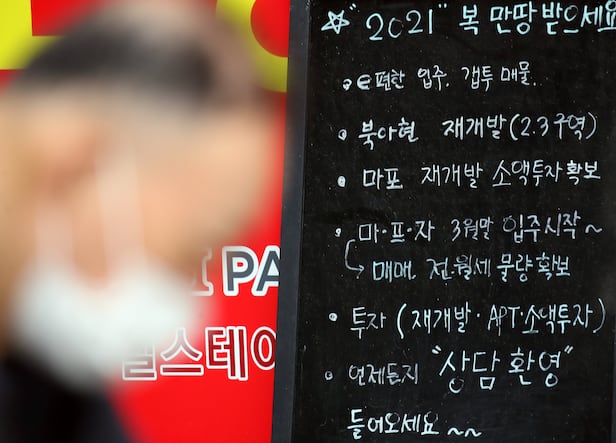 ☆ "2021" 복 만땅 받으세요
• e편한 입주. 갭투 매물.
• 북아현 재개발(2.3구역)
• 마포 재개발 소액투자확보
• 마·프·자 3월말 입주시작~
↳ 매매. 전·월세 물량확보
• 투자 (재개발·APT·소액투자)
• 언제든지 "상담 환영"
들어오세요~~
PA
스테이